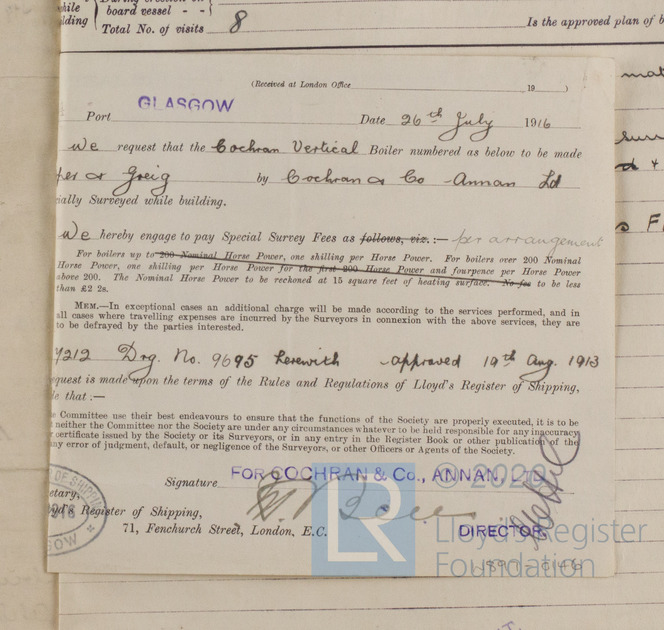 board vessel - -
Total No. of visits 8
Is the approved plan of b
(Received at London Office 19 )
GLASGOW
Port Date 26th July 1916
We request that the Cochran Vertical Boiler numbered as below to be made
per & Greig by Cochran & Co Annan Ld
cially Surveyed while building.
We hereby engage to pay Special Survey Fees as follows, viz. :— per arrangement
For boilers up to 200 Nominal Horse Power, one shilling per Horse Power. For boilers over 200 Nominal
Horse Power, one shilling per Horse Power for the first 200 Horse Power and fourpence per Horse Power
above 200. The Nominal Horse Power to be reckoned at 15 square feet of heating surface. No fee to be less
than £2 2s.
MEM.—In exceptional cases an additional charge will be made according to the services performed, and in
all cases where travelling expenses are incurred by the Surveyors in connexion with the above services, they are
to be defrayed by the parties interested.
7212 Drg. No. 9695 herewith approved 19th Aug. 1913
equest is made upon the terms of the Rules and Regulations of Lloyd's Register of Shipping,
le that :—
Committee use their best endeavours to ensure that the functions of the Society are properly executed, it is to be
neither the Committee nor the Society are under any circumstances whatever to be held responsible for any inaccuracy
certificate issued by the Society or its Surveyors, or in any entry in the Register Book or other publication of the
ny error of judgment, default, or negligence of the Surveyors, or other Officers or Agents of the Society.
FOR COCHRAN & Co., ANNAN, LTD
Signature
© 2020
etary,
yd's Register of Shipping,
71, Fenchurch Street, London, E.C.
DIRECTOR.
LR
Lloyd's Register
Foundation